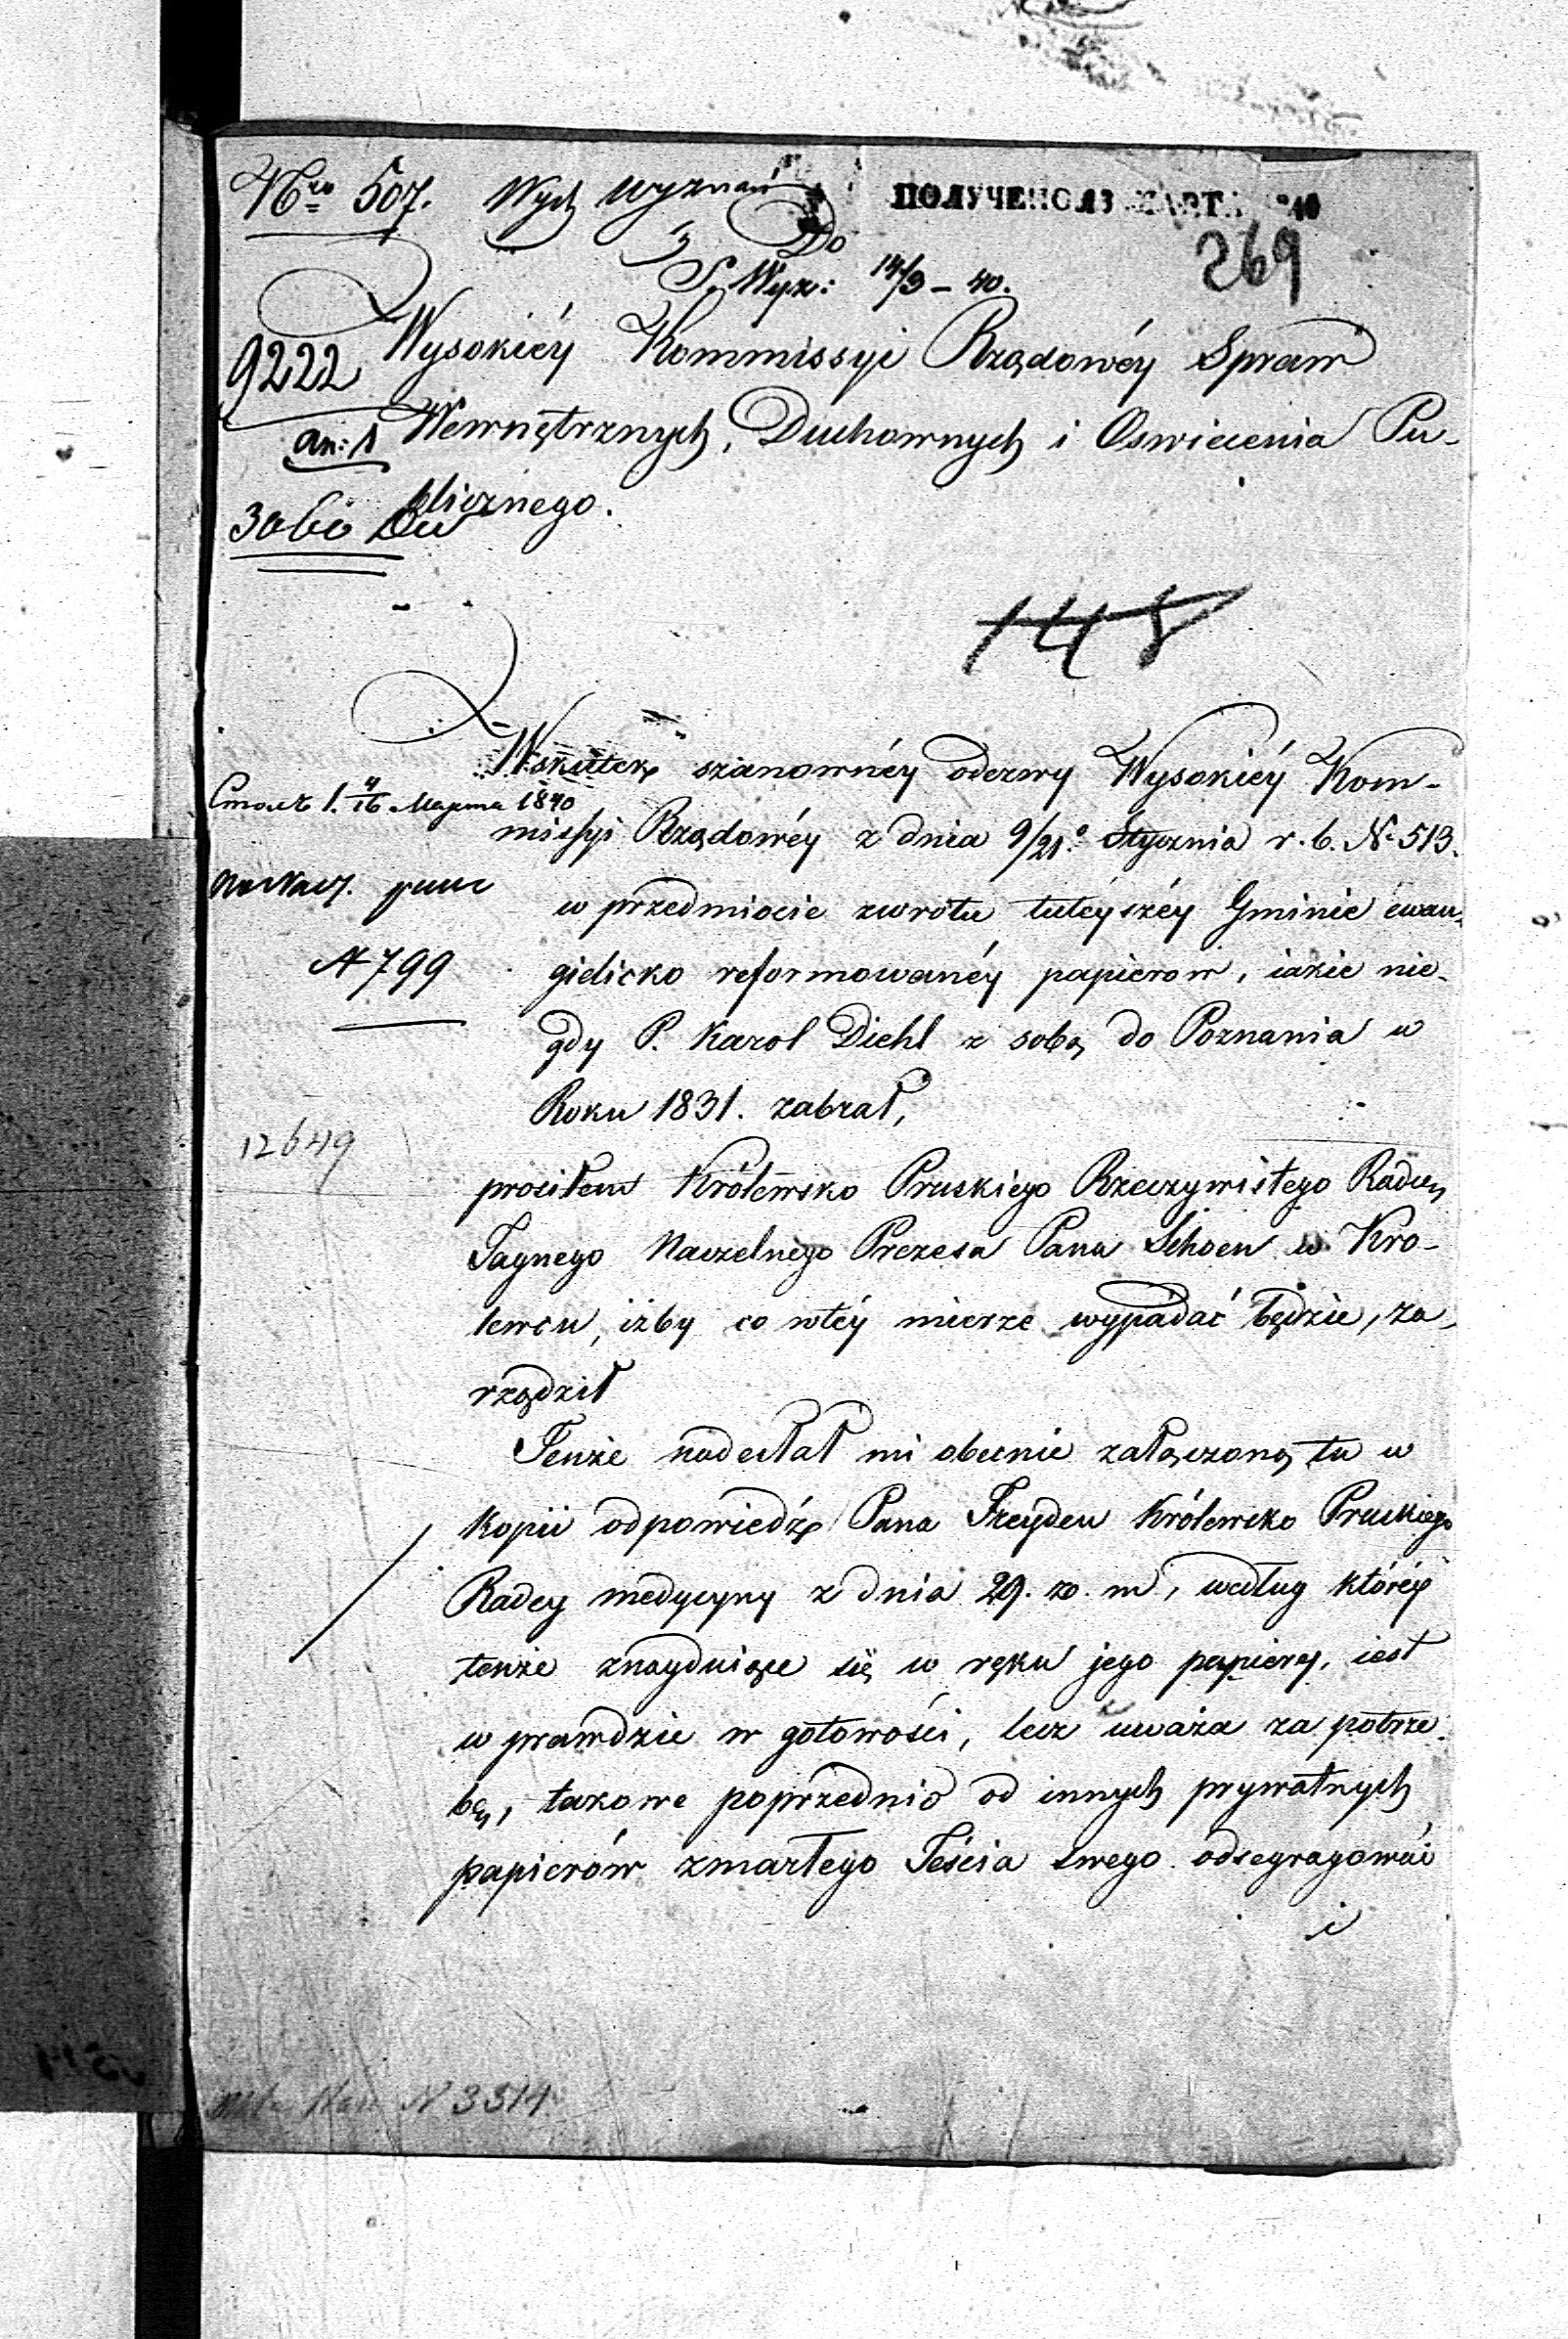 Nro 507. Wydz wyznań
ПОЛУЧЕНО 13 МАРТА 1840
Do
269
S. Wyz: 14/3 – 40.
9222
Wysokiéy Kommissyi Rządowéy Spraw
an: 1
Wewnętrznych, Duchownych i Oswiecenia Pu-
blicznego.
3060
148
Wskutek szanownéy odezwy Wysokiéy Kom-
1. 4/16 Марта 1840
missyi Rządowéy z dnia 9/21.° Stycznia r. b. No 513.
w przedmiocie zwrotu tuteyszéy Gminie ewan-
N 799
gielicko reformowanéy papierow, iakie nie-
gdy P. Karol Diehl z sobą do Poznania w
Roku 1831. zabrał,
12649
prosiłem Królewsko Pruskiego Rzeczywistego Radcy
Taynego Naczelnego Prezesa Pana Schoen w Kro-
lewcu, iżby co wtéy mierze wypadać będzie, za-
rządził
Tenże nadesłał mi obecnie załączoną tu w
kopii odpowiedź Pana Treyden Królewsko Pruskiego
Radcy medycyny z dnia 29. z. m, według któréy
tenże znayduiące się w ręku jego papiery, iest
w prawdzie w gotowości, lecz uważa za potrze-
bę, takowe poprzednio od innych prywatnych
papierów zmarłego Teścia swego odsegragować
i
N 3514